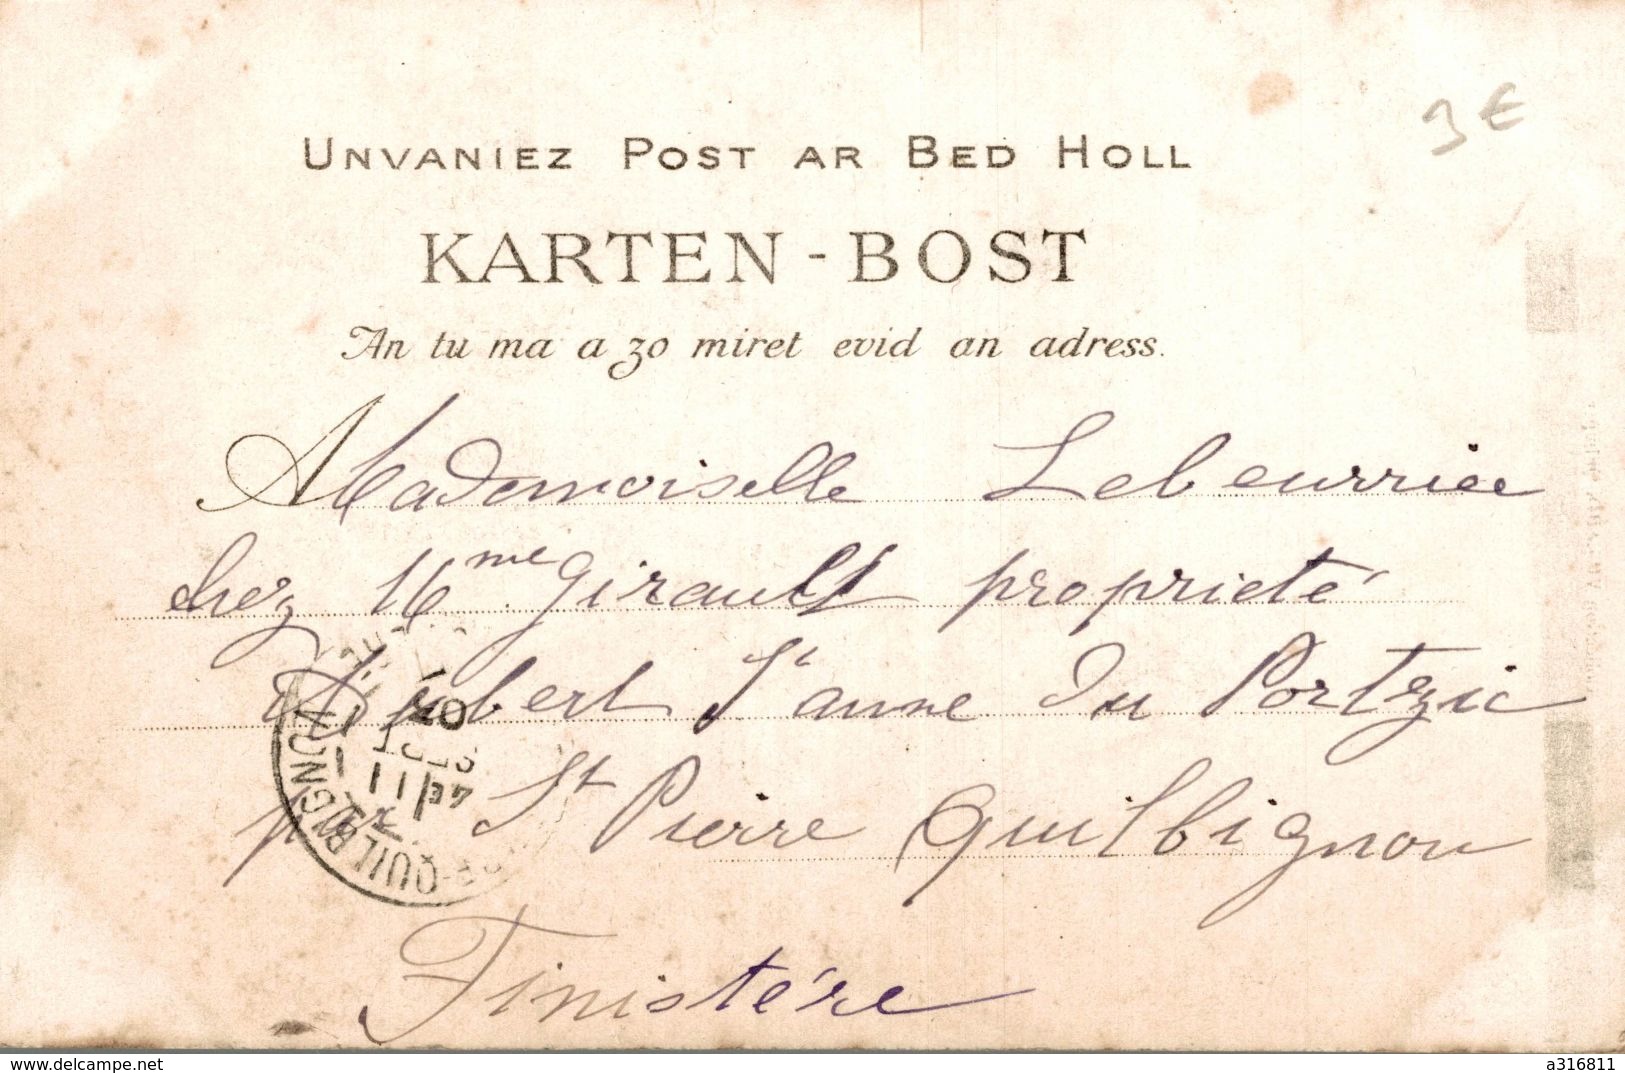 3 €
UNVANIEZ POST AR BED HOLL
KARTEN-BOST
An tu ma a zo miret evid an adress.
A Mademoiselle Lebeurrier
chez Mme Girault propriété
Aubert St anne du Portzic
par St Pierre Quilbignon
Finistère
QUILBIGNON
www.delcampe.net
a316811